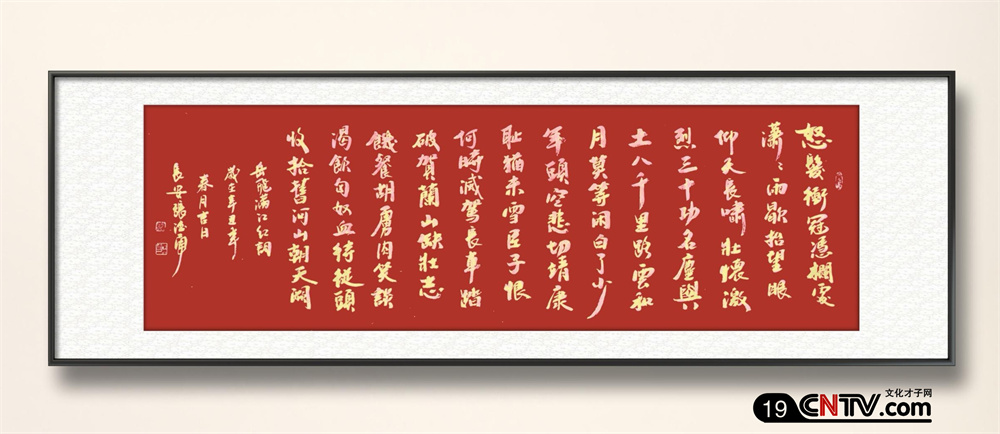 怒髮衝冠憑欄處
瀟〻雨歇抬望眼
仰天長嘯壯懷激
烈三十功名塵與
土八千里路雲和
月莫等闲白了少
年頭空悲切靖康
恥猶未雪臣子恨
何時滅駕長車踏
破賀蘭山缺壯志
饑餐胡虜肉笑談
渴飲匈奴血待從頭
收拾舊河山朝天闕
岳飛滿江紅詞
歲在辛丑年
春月吉日
長安張
文化才子网
19 CNTV.com